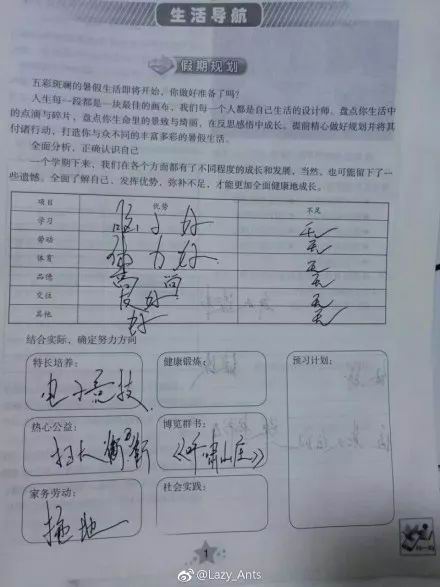 生活导航
假期规划
五彩斑斓的暑假生活即将开始，你做好准备了吗？
人生每一段都是一块最佳的画布，我们每一个人都是自己生活的设计师。盘点你生活中
的点滴与碎片，盘点你生命里的景致与绮丽，在反思感悟中成长。提前精心做好规划并将其
付诸行动，打造你与众不同的丰富多彩的暑假生活。
全面分析，正确认识自己
一个学期下来，我们在各个方面都有了不同程度的成长和发展，当然，也可能留下了一
些遗憾。全面了解自己，发挥优势，弥补不足，才能更加全面健康地成长。
项目 优势 不足
学习 好 无
劳动 好 无
体育 无
品德 高尚 无
交往 友好 无
其他 好 无
结合实际，确定努力方向
特长培养： 健康锻炼： 预习计划：
电子竞技
热心公益： 博览群书：
扫大街 《呼啸山庄》
家务劳动： 社会实践：
拖地
1
@Lazy_Ants